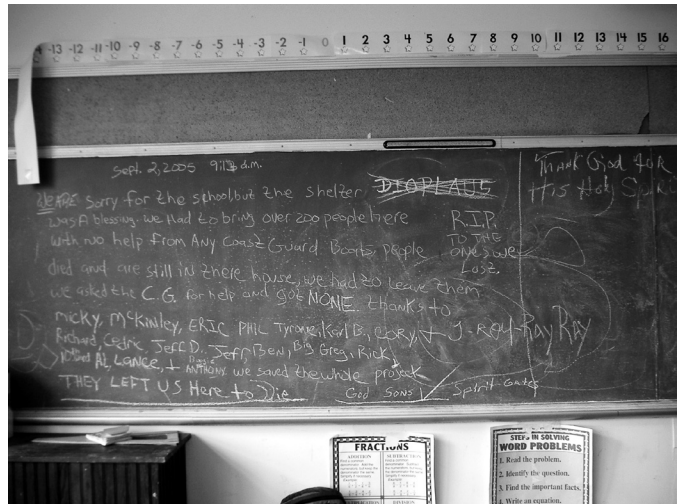 -13 -12 -11 -10 -9 -8 -7 -6 -5 -4 -3 -2 -1 0 1 2 3 4 5 6 7 8 9 10 11 12 13 14 15 16
Sept. 2, 2005 a.m.
We ARE Sorry for the school, but the shelter
was A blessing. we Had to bring over 200 people here
with no help from Any Coast Guard Boats. people
died and are still in there house, we had to leave them
we asked the C.G. for help and got NONE. thanks to
micky, McKinley, ERIC PHIL Tyrone, Karl B, CORY, + J-Roy-RAY RAY
Richard, Cedric, Jeff D., Jeff, Ben, Big Greg, Rick,
Al, Lance, + ANTHONY we saved the whole project
THEY LEFT US Here to Die
God Sons / Spirit-Gates
R.I.P.
TO THE
ONES WE
LOST.
THANK God for
His Holy Spirit
FRACTIONS
ADDITION SUBTRACTION
STEPS IN SOLVING
WORD PROBLEMS
1. Read the problem.
2. Identify the question.
3. Find the important facts.
4. Write an equation.